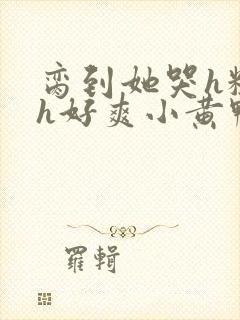 脔到她哭h粗
h好爽小黄鸭
羅輯